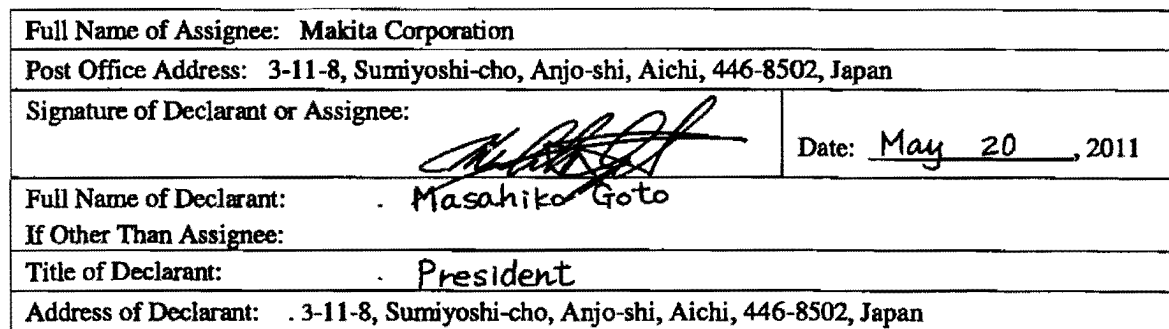 Full Name of Assignee: Makita Corporation
Post Office Address: 3-11-8, Sumiyoshi-cho, Anjo-shi, Aichi, 446-8502, Japan
Signature of Declarant or Assignee:
Date: May 20, 2011
Full Name of Declarant: Masahiko Goto
If Other Than Assignee:
Title of Declarant: President
Address of Declarant: 3-11-8, Sumiyoshi-cho, Anjo-shi, Aichi, 446-8502, Japan